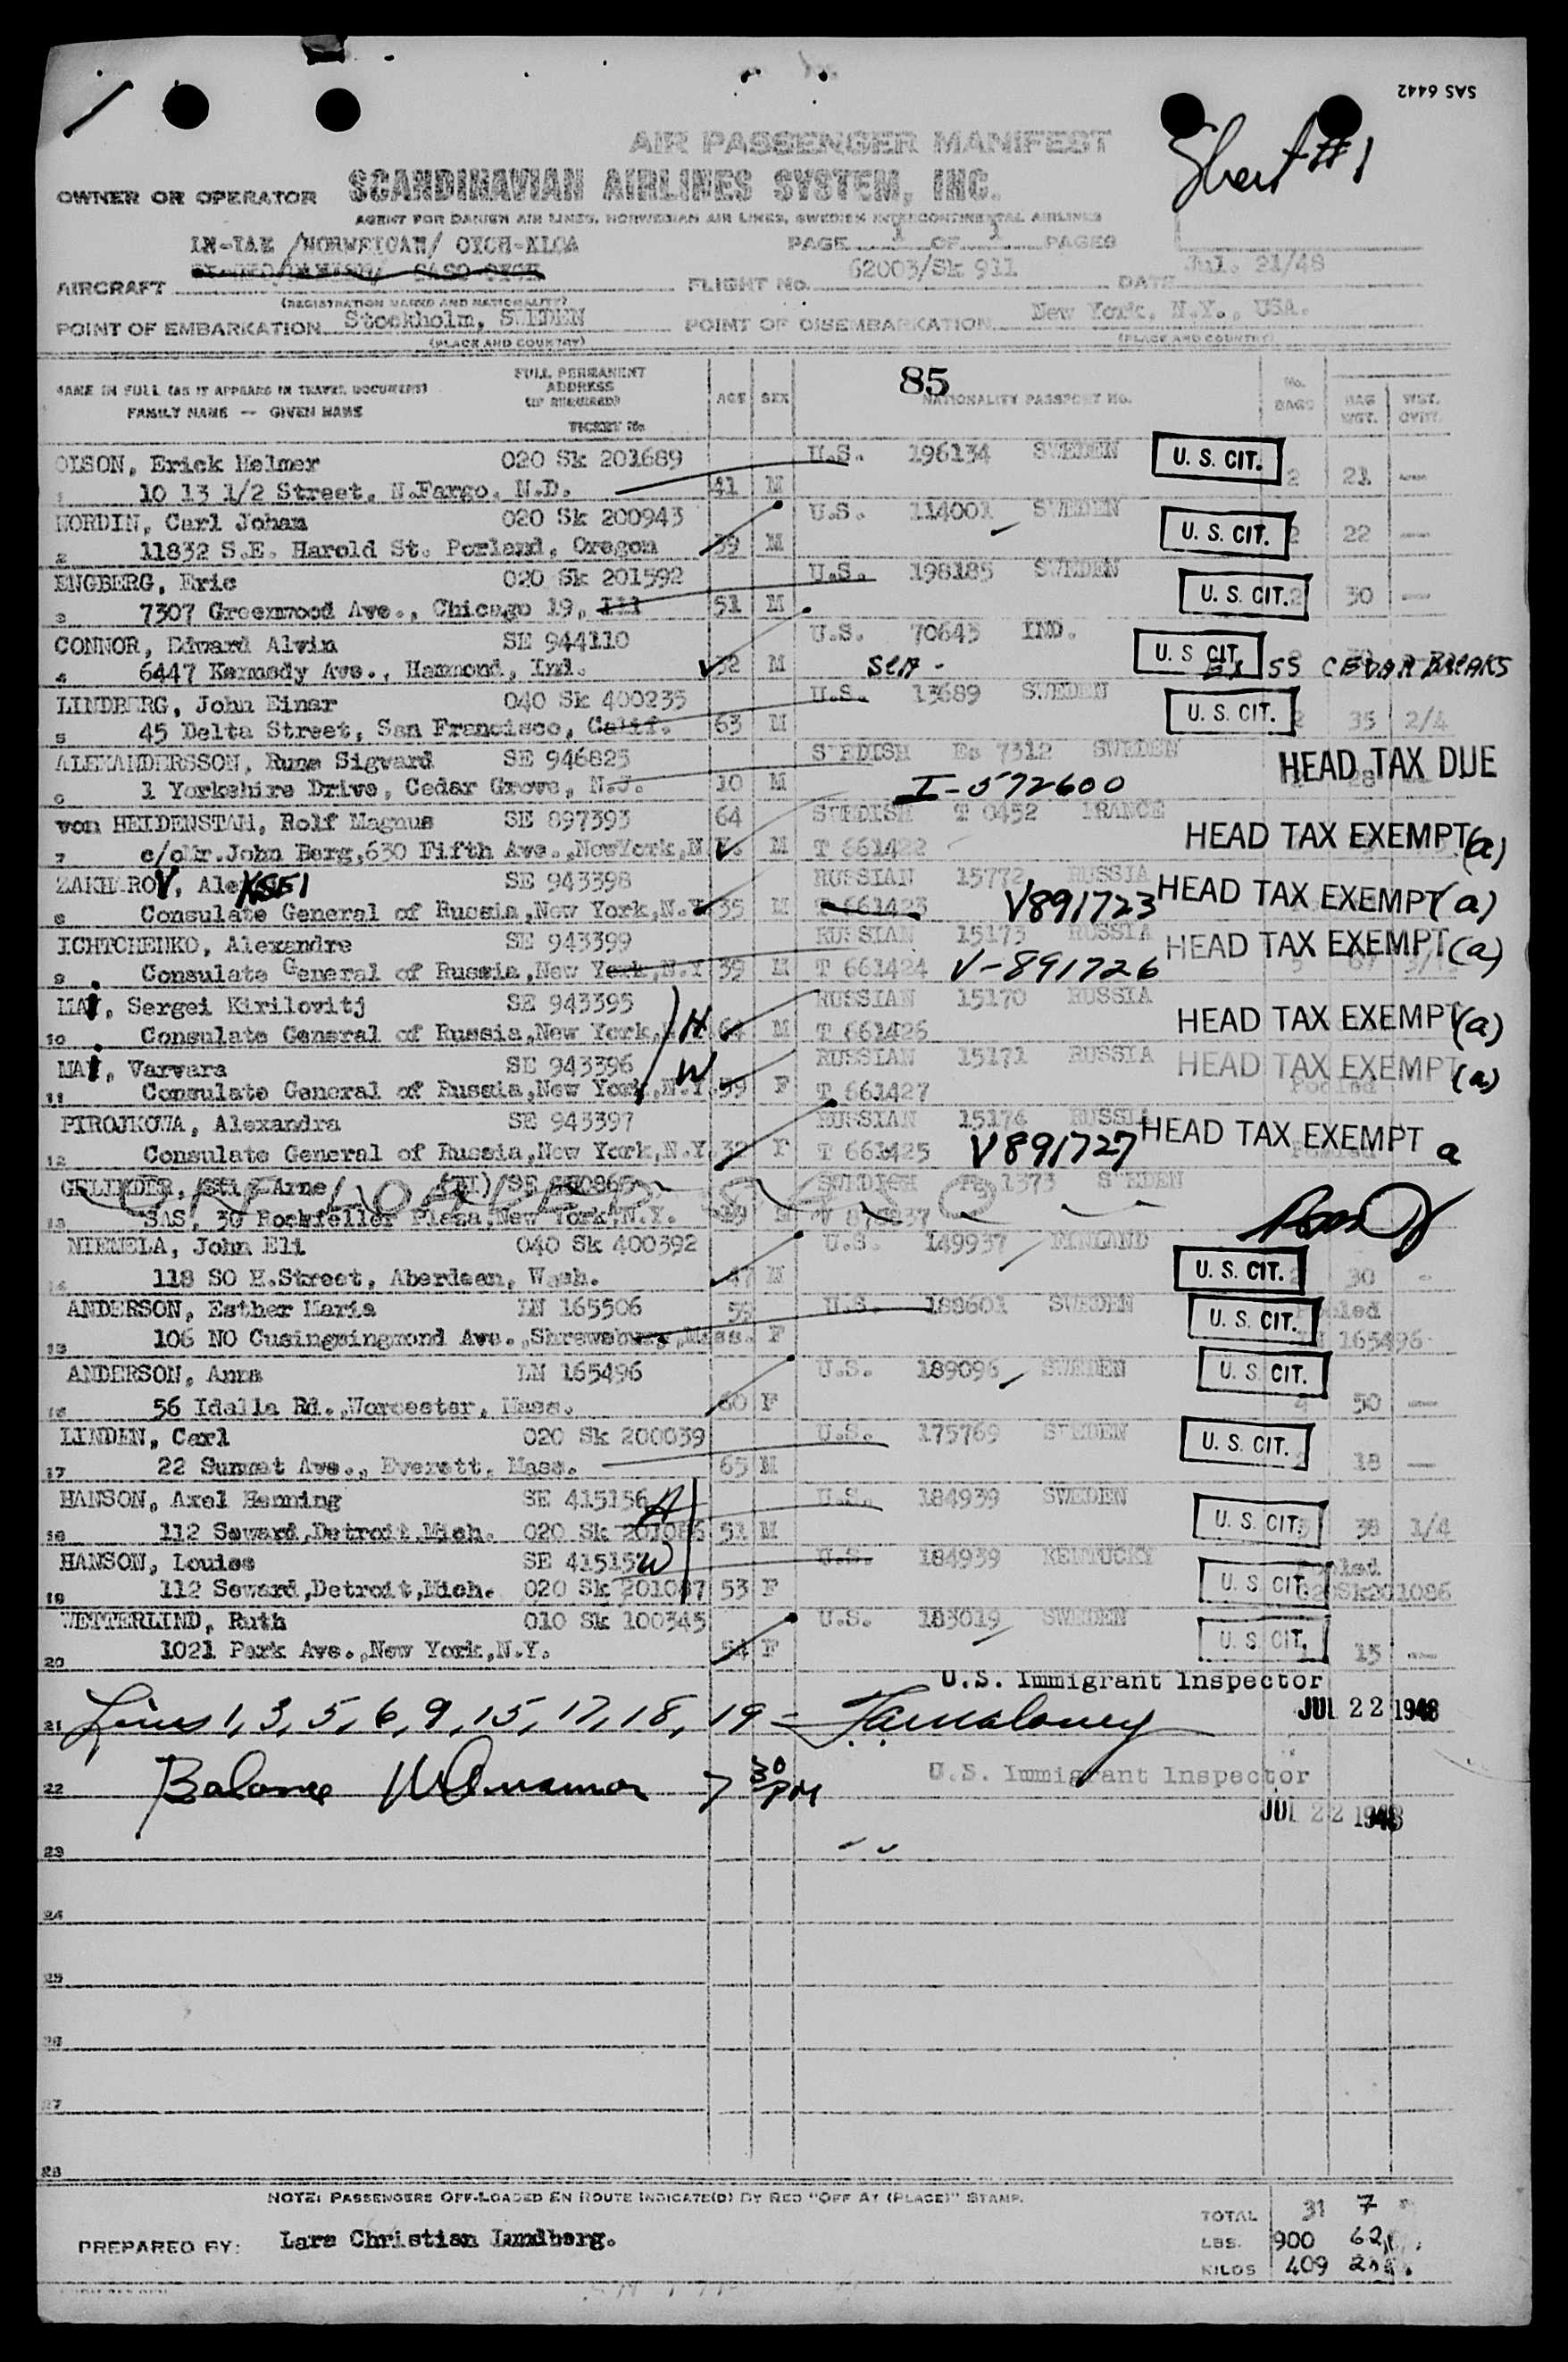 SAS 6442
Sheet #1
AIR PASSENGER MANIFEST
OWNER OR OPERATOR SCANDINAVIAN AIRLINES SYSTEM, INC.
AGENT FOR DANISH AIR LINES, NORWEGIAN AIR LINES, SWEDISH INTERCONTINENTAL AIRLINES
LN-IAE /NORWEIGAN/
PAGE 1 OF 1 PAGES
AIRCRAFT FLIGHT No. 62003/Sk 911 DATE Jul. 21/48
(REGISTRATION MARKS AND NATIONALITY)
POINT OF EMBARKATION Stockholm, SWEDEN POINT OF DISEMBARKATION New York, N.Y., USA.
(PLACE AND COUNTRY) (PLACE AND COUNTRY)
NAME IN FULL (AS IT APPEARS IN TRAVEL DOCUMENT) FULL PERMANENT ADDRESS (IF REQUIRED) AGE SEX 85 NATIONALITY PASSPORT No. No. BAGS BAG WGT. WGT. OVWT.
FAMILY NAME — GIVEN NAME TICKET No
OLSON, Erick Helmer 020 Sk 201689 U.S. 196134 SWEDEN U. S. CIT.
1 10 13 1/2 Street, N.Fargo, N.D. 41 M 2 21 —
NORDIN, Carl Johan 020 Sk 200943 U.S. 114001 SWEDEN U. S. CIT.
2 11832 S.E. Harold St. Porland, Oregon 39 M 2 22 —
ENGBERG, Eric 020 Sk 201592 U.S. 198185 SWEDEN U. S. CIT.
3 7307 Greenwood Ave., Chicago 19, Ill 51 M 2 30 —
CONNOR, Edward Alvin SE 944110 U.S. 70643 IND. U. S. CIT.
4 6447 Kennedy Ave., Hammond, Ind. 32 M SEA - EX SS CEDAR BREAKS
LINDBERG, John Einar 040 Sk 400235 U.S. 13689 SWEDEN U. S. CIT.
5 45 Delta Street, San Francisco, Calif. 63 M 2 35 2/4
ALEXANDERSSON, Rune Sigvard SE 946823 SWEDISH Es 7312 SWEDEN HEAD TAX DUE
6 1 Yorkshire Drive, Cedar Grove, N.J. 10 M I-572600 28
von HEIDENSTAM, Rolf Magnus SE 897393 64 SWEDISH T 0452 FRANCE HEAD TAX EXEMPT (a)
7 c/oMr.John Berg,630 Fifth Ave.,NewYork,N.Y. M T 661422
ZAKHAROV, AleKSEI SE 943398 RUSSIAN 15772 RUSSIA HEAD TAX EXEMPT (a)
8 Consulate General of Russia,New York,N.Y. 35 M T 661423 V891723
ICHTCHENKO, Alexandre SE 943399 RUSSIAN 15173 RUSSIA HEAD TAX EXEMPT (a)
9 Consulate General of Russia,New York,N.Y 39 M T 661424 V-891726
MAi, Sergei Kirilovitj SE 943395 RUSSIAN 15170 RUSSIA HEAD TAX EXEMPT (a)
10 Consulate General of Russia,New York, H 64 M T 661426
MAi, Varvara SE 943396 W RUSSIAN 15171 RUSSIA HEAD TAX EXEMPT (a)
11 Consulate General of Russia,New York,N.Y. 59 F T 661427 Pooled
PIROJKOWA, Alexandra SE 943397 RUSSIAN 15174 RUSSIA HEAD TAX EXEMPT a
12 Consulate General of Russia,New York,N.Y. 32 F T 661425 V891727 Pooled
GELINDER, Stig Arne SWEDISH 1373 SWEDEN
13 SAS, 30 Rockfeller Plaza,New York,N.Y. 29 M
NIEMELA, John Eli 040 Sk 400392 U.S. 149937 FINLAND U. S. CIT.
14 118 SO H.Street, Aberdeen, Wash. 47 M 2 30 -
ANDERSON, Esther Maria LN 165506 55 U.S. 188601 SWEDEN U. S. CIT. Pooled
15 106 NO Cusingmingmond Ave.,Shrewsbury,Mass. F LN 165496
ANDERSON, Anna LN 165496 U.S. 189096 SWEDEN U. S. CIT.
16 56 Idalla Rd.,Worcester, Mass. 60 F 4 50 —
LINDEN, Carl 020 Sk 200039 U.S. 175769 SWEDEN U. S. CIT.
17 22 Summat Ave., Everett, Mass. 65 M 2 18 —
HANSON, Axel Henning SE 415156 H U.S. 184939 SWEDEN U. S. CIT.
18 112 Seward,Detroit,Mich. 020 Sk 201086 51 M 3 38 1/4
HANSON, Louise SE 41515 W U.S. 184939 KENTUCKY U. S. CIT. Pooled
19 112 Seward,Detroit,Mich. 020 Sk 201087 53 F 020Sk201086
WETTERLIND, Ruth 010 Sk 100345 U.S. 183019 SWEDEN U. S. CIT.
20 1021 Park Ave.,New York,N.Y. 54 F 1 15 —
U.S. Immigrant Inspector
21 Lines 1, 3, 5, 6, 9, 15, 17, 18, 19 = JUL 22 1948
22 Balance 7 30 PM U.S. Immigrant Inspector
JUL 22 1948
23
24
25
26
27
28
NOTE: PASSENGERS OFF-LOADED EN ROUTE INDICATE(D) BY RED "OFF AT (PLACE)" STAMP.
TOTAL 31 7
PREPARED BY: Lars Christian Lundberg. LBS. 900
KILOS 409